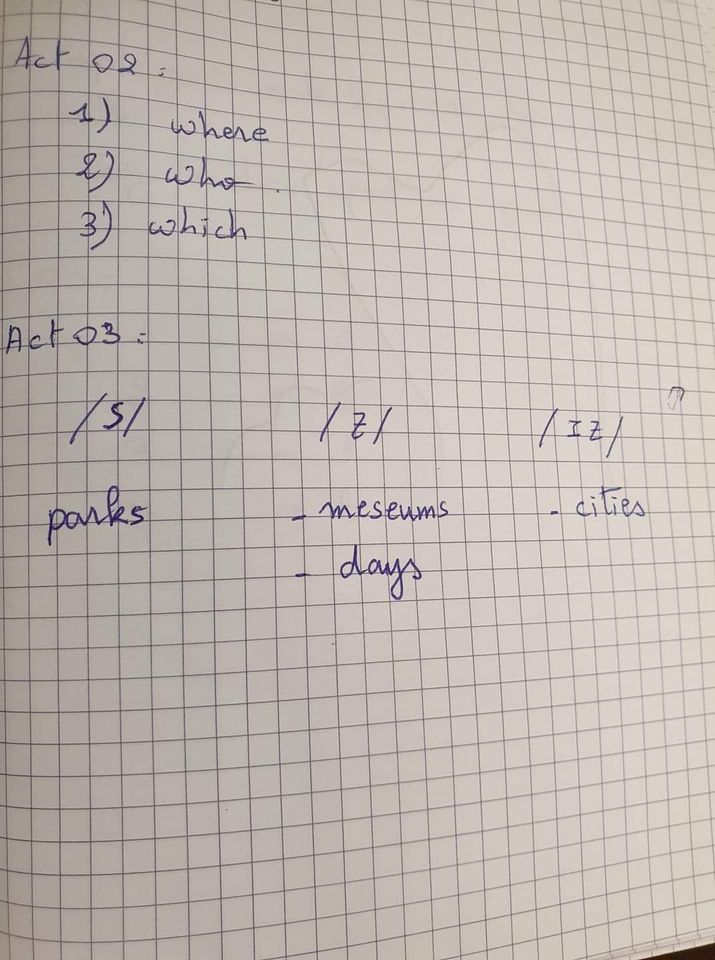 Act 02 :
1) where
2) who .
3) which
Act 03 :
/S/ /Z/ /IZ/
parks - meseums - cities
- days